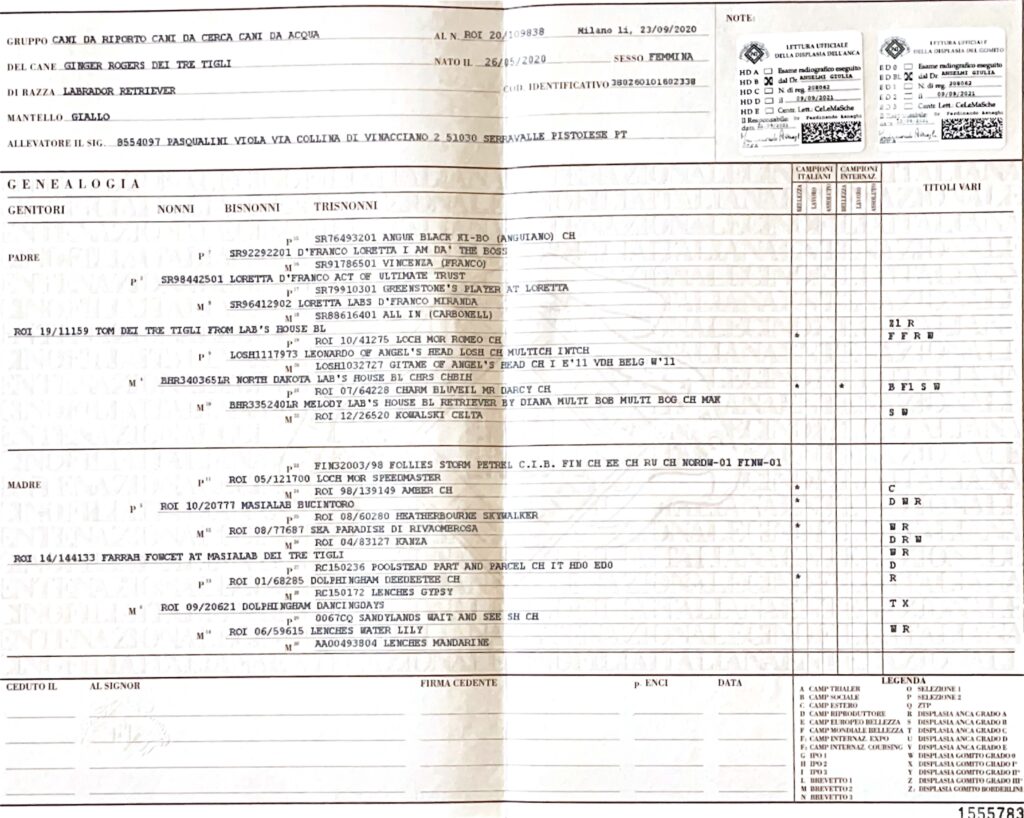 GRUPPO CANI DA RIPORTO CANI DA CERCA CANI DA ACQUA AL N. ROI 20/109838 Milano li, 23/09/2020
DEL CANE GINGER ROGERS DEI TRE TIGLI NATO IL 26/05/2020 SESSO FEMMINA
DI RAZZA LABRADOR RETRIEVER COD IDENTIFICATIVO 380260101602338
MANTELLO GIALLO
ALLEVATORE IL SIG. 8554097 PASQUALINI VIOLA VIA COLLINA DI VINACCIANO 2 51030 SERRAVALLE PISTOIESE PT
NOTE:
LETTURA UFFICIALE
DELLA DISPLASIA DELL'ANCA
HD A Esame radiografico eseguito
HD B dal Dr. ANSELMI GIULIA
HD C N. di reg. 208042
HD D il 09/09/2021
HD E Centr. Lett. CeLeMaSche
Il Responsabile Dr Ferdinando Asnaghi
LETTURA UFFICIALE
DELLA DISPLASIA DEL GOMITO
ED 0 Esame radiografico eseguito
ED BL dal Dr. ANSELMI GIULIA
ED 1 N. di reg. 208042
ED 2 il 09/09/2021
ED 3 Centr. Lett. CeLeMaSche
Ferdinando Asnaghi
GENEALOGIA
GENITORI NONNI BISNONNI TRISNONNI
CAMPIONI ITALIANI CAMPIONI INTERNAZ TITOLI VARI
BELLEZZA LAVORO ASSOLUTO BELLEZZA LAVORO ASSOLUTO
P SR76493201 ANGUK BLACK KI-BO (ANGUIANO) CH
PADRE P SR92292201 D'FRANCO LORETTA I AM DA' THE BOSS
M SR91786501 VINCENZA (FRANCO)
P SR98442501 LORETTA D'FRANCO ACT OF ULTIMATE TRUST
P SR79910301 GREENSTONE'S PLAYER AT LORETTA
M SR96412902 LORETTA LABS D'FRANCO MIRANDA
M SR88616401 ALL IN (CARBONELL)
ROI 19/11159 TOM DEI TRE TIGLI FROM LAB'S HOUSE BL Z1 R
P ROI 10/41275 LOCH MOR ROMEO CH * F F R W
P LOSH1117973 LEONARDO OF ANGEL'S HEAD LOSH CH MULTICH INTCH
M LOSH1032727 GITANE OF ANGEL'S HEAD CH I E'11 VDH BELG W'11
M BHR340365LR NORTH DAKOTA LAB'S HOUSE BL CHRS CHBIH
P ROI 07/64228 CHARM BLUVEIL MR DARCY CH * * B F1 S W
M BHR335240LR MELODY LAB'S HOUSE BL RETRIEVER BY DIANA MULTI BOB MULTI BOG CH MAK
M ROI 12/26520 KOWALSKI CELTA S W
P FIN32003/98 FOLLIES STORM PETREL C.I.B. FIN CH EE CH RU CH NORDW-01 FINW-01
MADRE P ROI 05/121700 LOCH MOR SPEEDMASTER
M ROI 98/139149 AMBER CH * C
P ROI 10/20777 MASIALAB BUCINTORO * D W R
P ROI 08/60280 HEATHERBOURNE SKYWALKER
M ROI 08/77687 SEA PARADISE DI RIVAOMBROSA * W R
M ROI 04/83127 KANZA D R W
ROI 14/144133 FARRAH FOWCET AT MASIALAB DEI TRE TIGLI W R
P RC150236 POOLSTEAD PART AND PARCEL CH IT HD0 ED0 D
P ROI 01/68285 DOLPHINGHAM DEEDEETEE CH * R
M RC150172 LENCHES GYPSY
M ROI 09/20621 DOLPHINGHAM DANCINGDAYS T X
P 0067CQ SANDYLANDS WAIT AND SEE SH CH
M ROI 06/59615 LENCHES WATER LILY W R
M AA00493804 LENCHES MANDARINE
CEDUTO IL AL SIGNOR FIRMA CEDENTE p. ENCI DATA
LEGENDA
A CAMP TRIALER O SELEZIONE 1
B CAMP SOCIALE P SELEZIONE 2
C CAMP ESTERO Q ZTP
D CAMP RIPRODUTTORE R DISPLASIA ANCA GRADO A
E CAMP EUROPEO BELLEZZA S DISPLASIA ANCA GRADO B
F CAMP MONDIALE BELLEZZA T DISPLASIA ANCA GRADO C
F1 CAMP INTERNAZ. EXPO U DISPLASIA ANCA GRADO D
F2 CAMP INTERNAZ COURSING V DISPLASIA ANCA GRADO E
G IPO 1 W DISPLASIA GOMITO GRADO 0
H IPO 2 X DISPLASIA GOMITO GRADO I°
I IPO 3 Y DISPLASIA GOMITO GRADO II°
L BREVETTO 1 Z DISPLASIA GOMITO GRADO III°
M BREVETTO 2 Z1 DISPLASIA GOMITO BORDERLINE
N BREVETTO 3
1555783